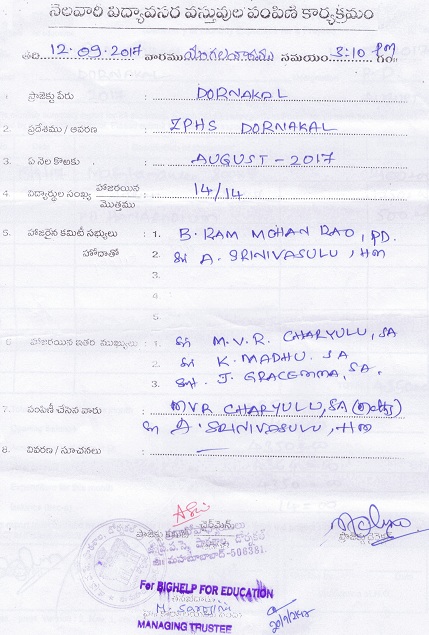 నెలవారీ విద్యావసర వస్తువుల పంపిణీ కార్యక్రమం
తేది 12.09.2017 వారము మంగళవారము సమయం 3:10 PM గం॥
1. ప్రాజెక్టు పేరు : DORNAKAL
2. ప్రదేశము / ఆవరణ : ZPHS DORNAKAL
3. ఏ నెల కొఱకు : AUGUST - 2017
4. విద్యార్థుల సంఖ్య హాజరయిన : 14/14
మొత్తము
5. హాజరైన కమిటీ సభ్యులు : 1. B. RAM MOHAN RAO, PD.
హోదాతో 2. Sri A. SRINIVASULU, HM
3.
4.
5.
6. హాజరయిన ఇతర ముఖ్యులు : 1. Sri M.V.R. CHARYULU, SA
2. Sri K. MADHU. SA
3. Smt. J. GRACEMMA, SA.
7. పంపిణీ చేసిన వారు : MVR CHARYULU, SA (Maths)
Sri A. SRINIVASULU, HM
8. వివరణ / సూచనలు : —
ప్రాజెక్టు
506381.
For BIGHELP FOR EDUCATION
MANAGING TRUSTEE